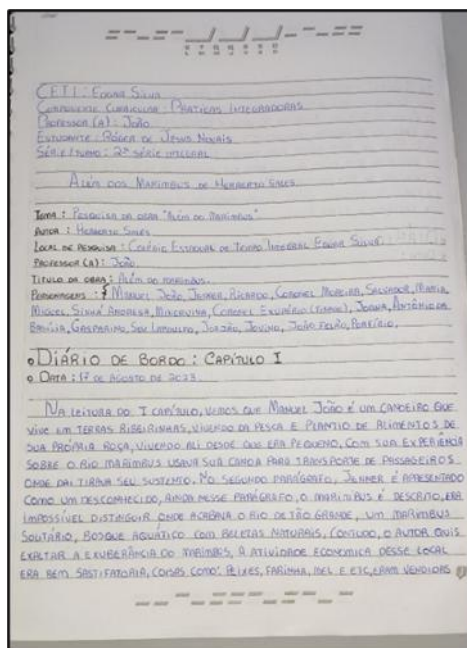 CETI: EDGAR SILVA
COMPONENTE CURRICULAR: PRÁTICAS INTEGRADORAS
PROFESSOR (A): JOÃO
ESTUDANTE: ROGER DE JESUS NOVAIS
SÉRIE/TURMA: 2ª SÉRIE INTEGRAL
ALÉM DOS MARIMBUS DE HERBERTO SALES
TEMA: PESQUISA DA OBRA "ALÉM DO MARIMBUS"
AUTOR: HERBERTO SALES
LOCAL DE PESQUISA: COLÉGIO ESTADUAL DE TEMPO INTEGRAL EDGAR SILVA
PROFESSOR (A): JOÃO
TITULO DA OBRA: ALÉM DO MARIMBUS.
PERSONAGENS: { MANUEL JOÃO, JENNER, RICARDO, CORONEL MOREIRA, SALVADOR, MARIA,
MIGUEL, SINHÁ ANDRESA, MINERVINA, CORONEL EXUPÉRIO, JOANA, ANTÔNIO DA
GASPARINO, SEU LANDULFO, JOVINO, JOÃO PORFÍRIO.
DIÁRIO DE BORDO: CAPÍTULO I
DATA: 17 DE AGOSTO DE 2023.
NA LEITURA DO I CAPÍTULO, VEMOS QUE MANUEL JOÃO É UM CANOEIRO QUE
VIVE EM TERRAS RIBEIRINHAS, VIVENDO DA PESCA E PLANTIO DE ALIMENTOS DE
SUA PRÓPRIA ROÇA, VIVENDO ALI DESDE QUE ERA PEQUENO, COM SUA EXPERIÊNCIA
SOBRE O RIO MARIMBUS USAVA SUA CANOA PARA TRANSPORTE DE PASSAGEIROS
ONDE DAI TIRAVA SEU SUSTENTO. NO SEGUNDO PARÁGRAFO, JENNER É APRESENTADO
COMO UM DESCONHECIDO, AINDA NESSE PARÁGRAFO, O MARIMBUS É DESCRITO, ERA
IMPOSSÍVEL DISTINGUIR ONDE ACABAVA O RIO DE TÃO GRANDE, UM MARIMBUS
SOLITÁRIO, BOSQUE AQUATICO COM BELEZAS NATURAIS, CONTUDO, O AUTOR QUIS
EXALTAR A EXUBERÂNCIA DO MARIMBUS, A ATIVIDADE ECONOMICA DESSE LOCAL
ERA BEM SASTIFATORIA, COISAS COMO: PEIXES, FARINHA, MEL E ETC, ERAM VENDIDAS